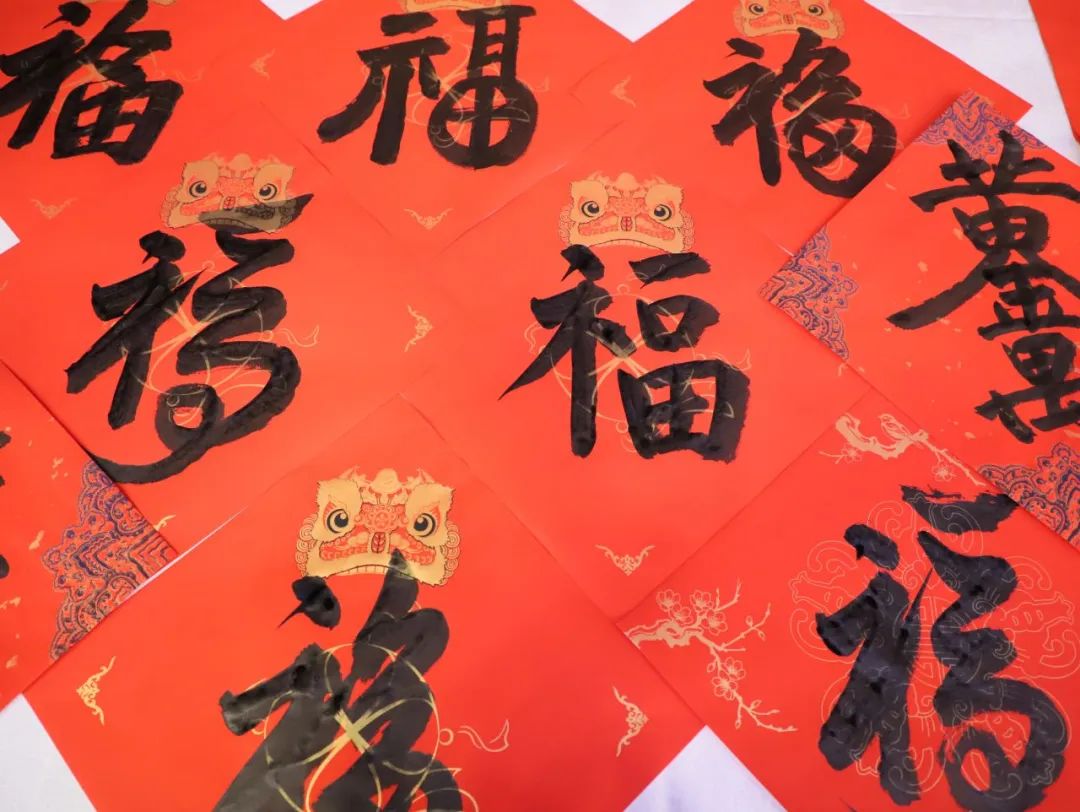 福
福
福
黄金萬
福
福
福
福